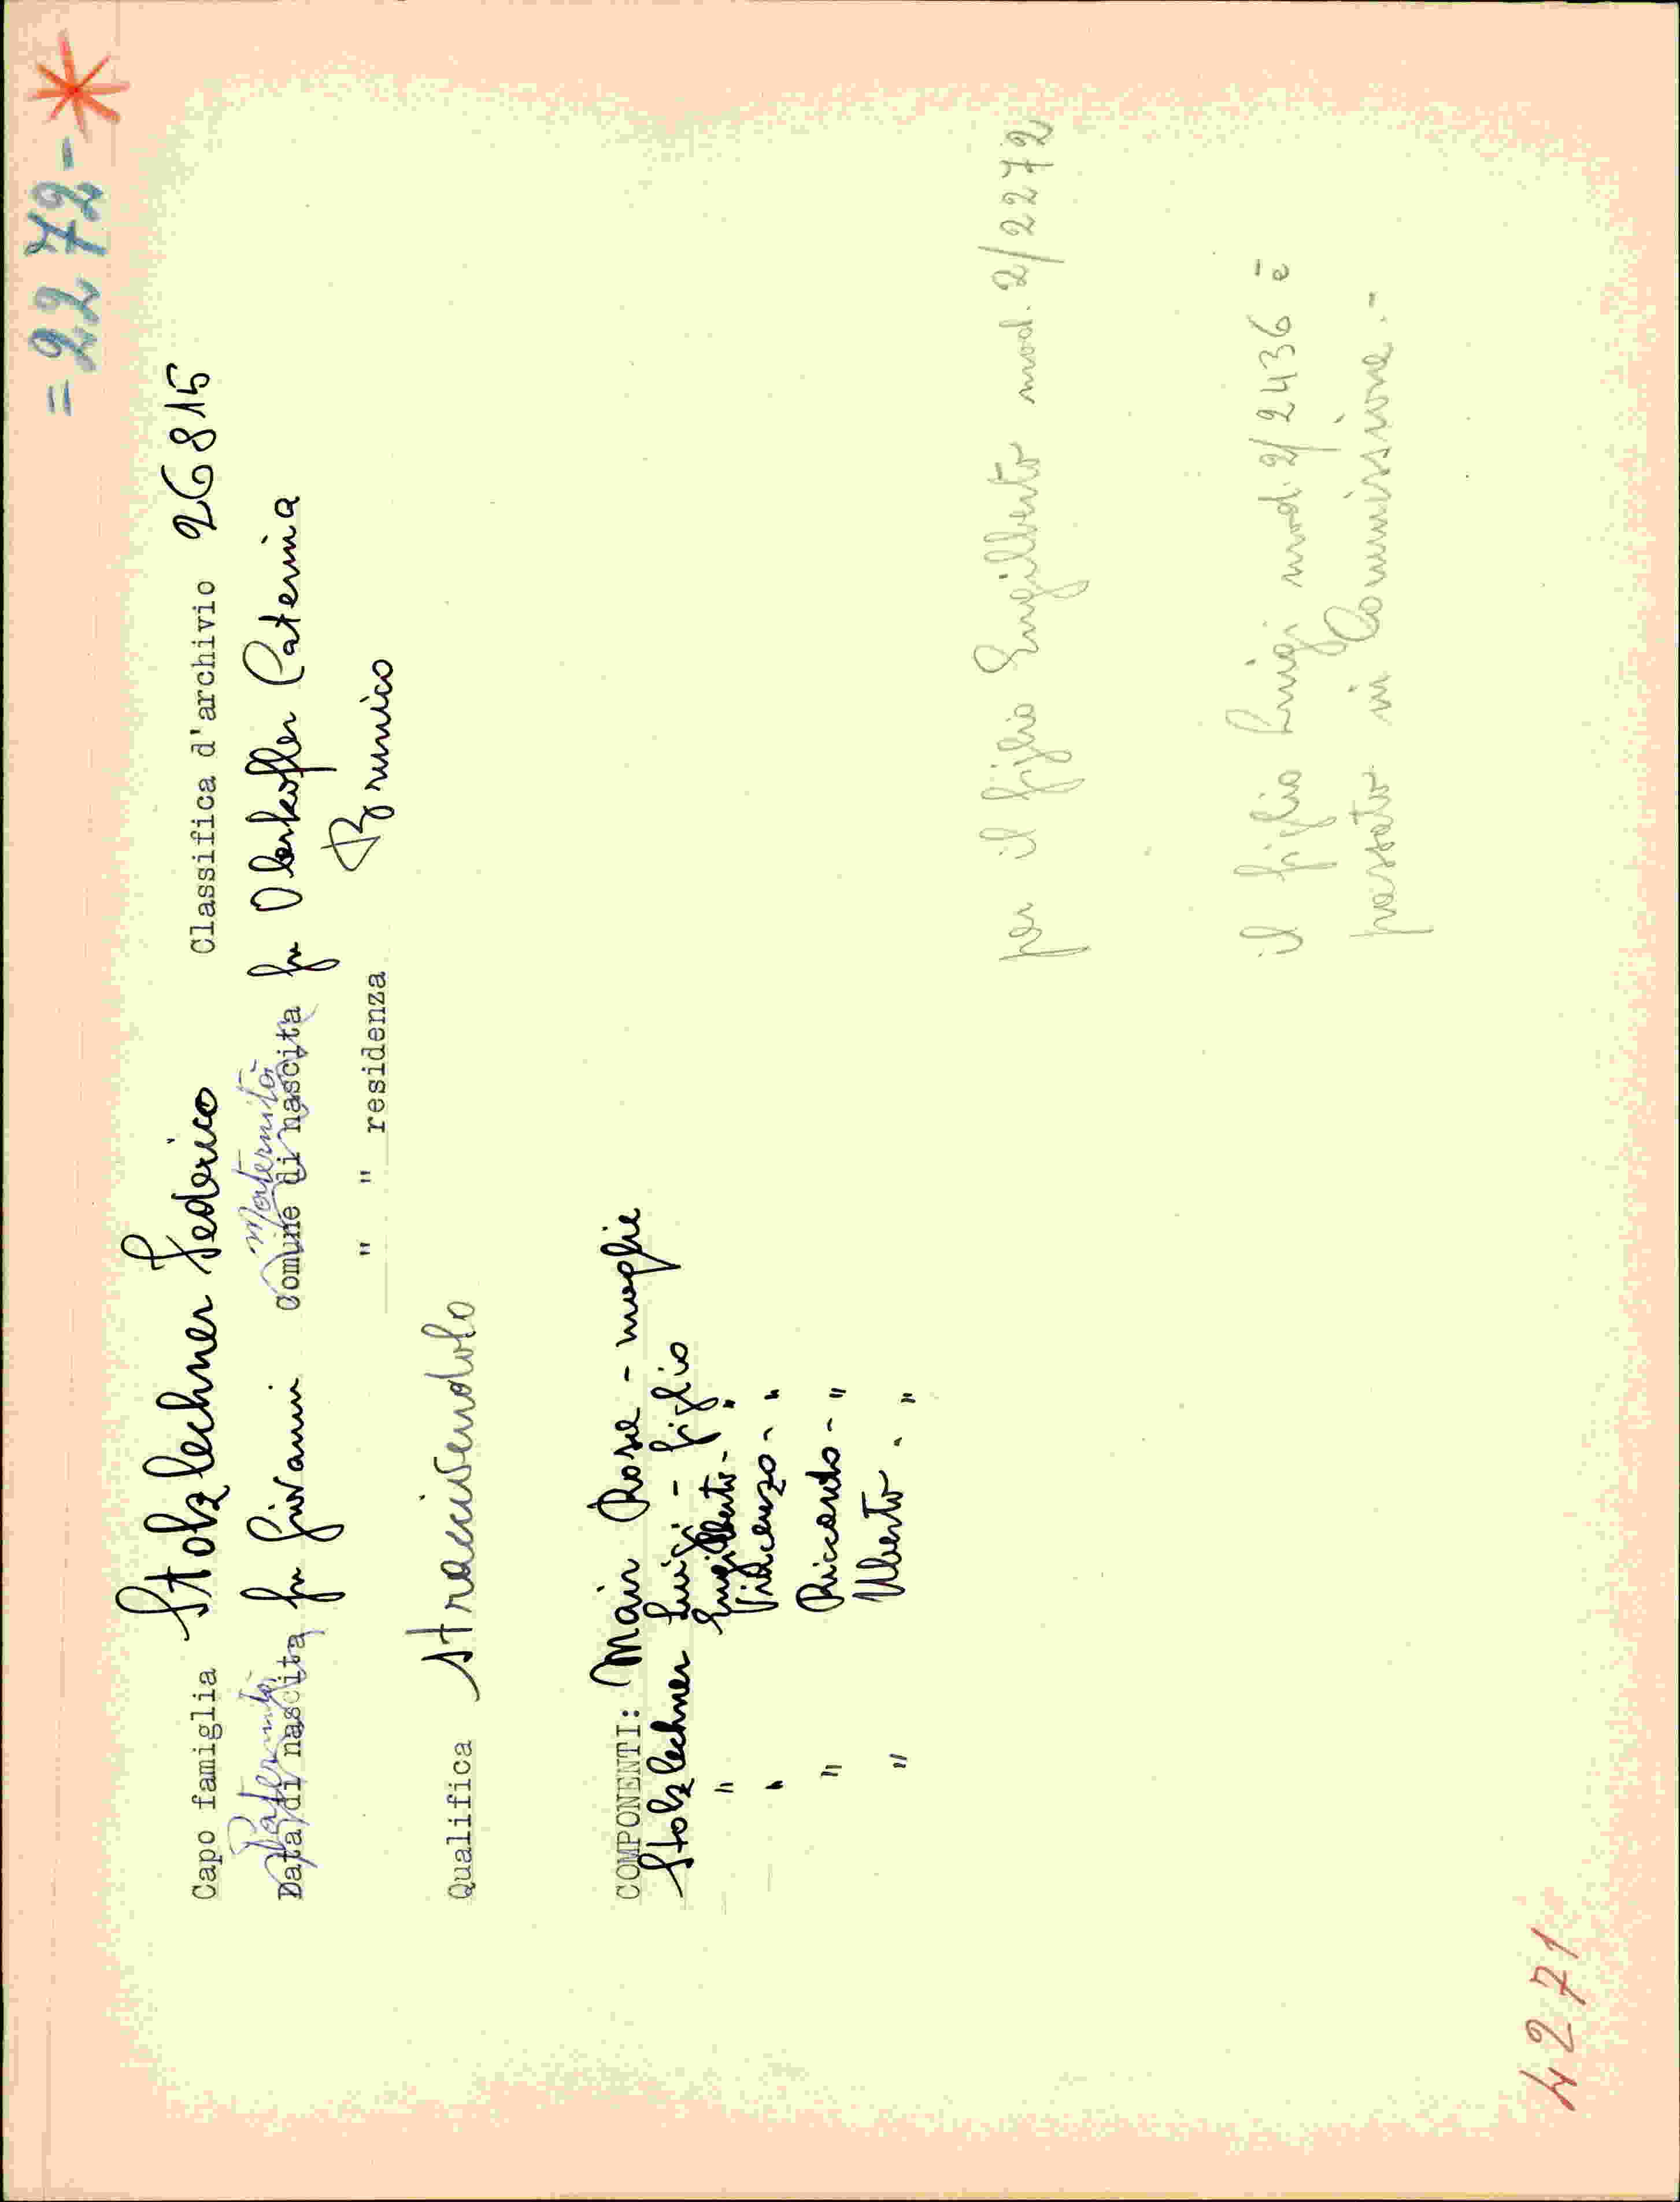 = 2272 - *
Capo famiglia Stolzlechner Federico Classifica d'archivio 26815
Paternità Maternità
Data di nascita fu Giovanni Comune di nascita fu Oberkofler Caterina
" " residenza Brunico
Qualifica straccivendolo
COMPONENTI: Mair Rosa - moglie
Stolzlechner Luigi - figlio
" Engilberto - "
" Vincenzo - "
" Riccardo - "
" Uberto - "
per il figlio Engilberto mod. 2/2272
il figlio Luigi mod. 2/2436 è
passato in Commissione.-
4271